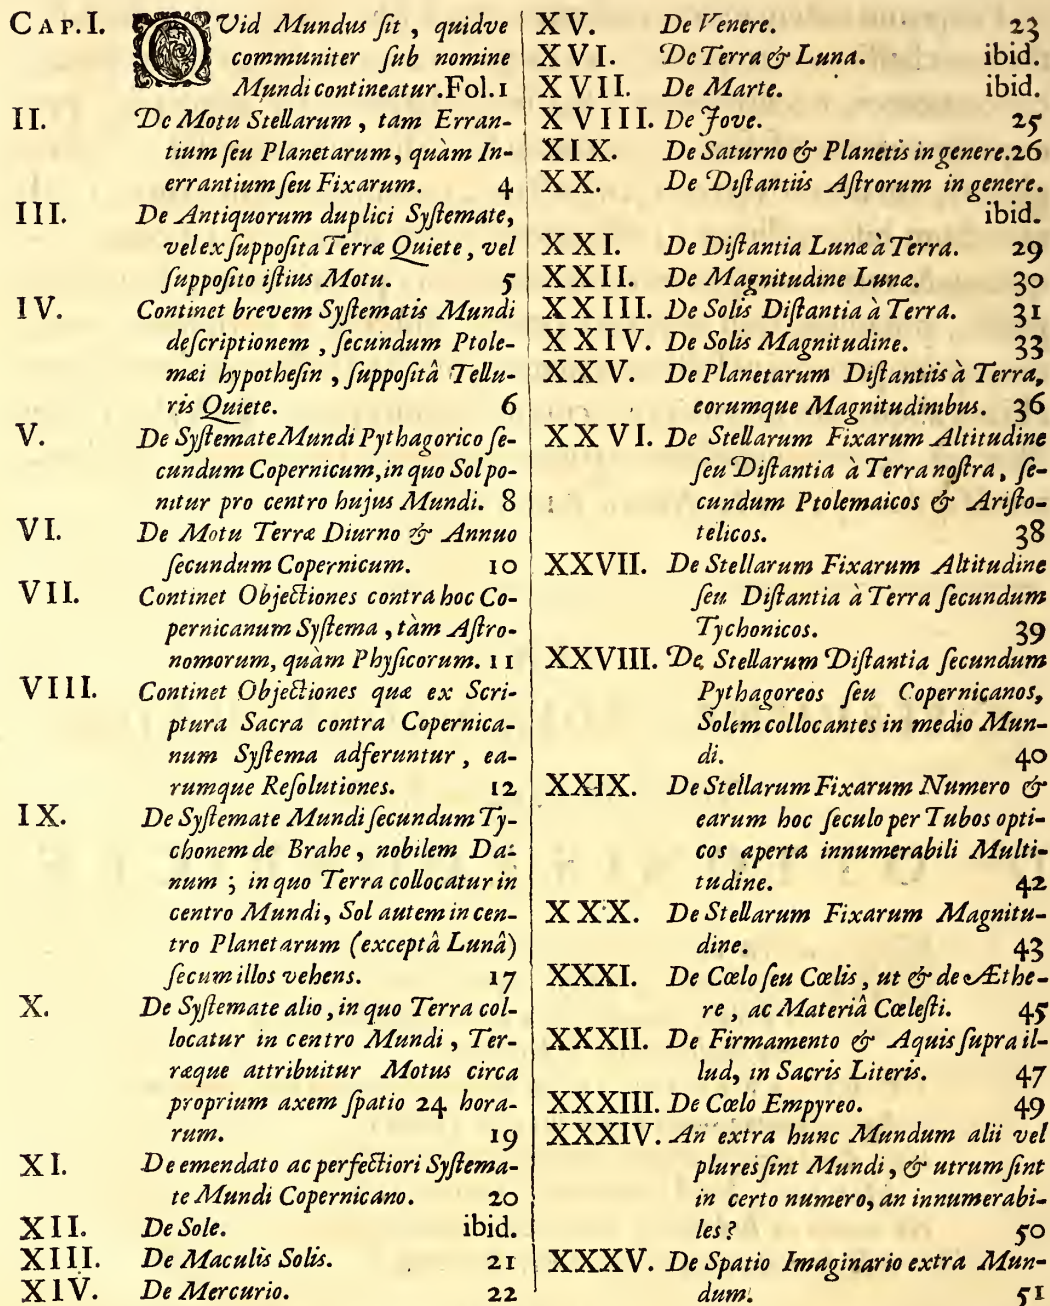 CAP. I. QVid Mundus ſit, quidve
communiter ſub nomine
Mundi contineatur. Fol. 1
II. De Motu Stellarum, tam Erran-
tium ſeu Planetarum, quàm In-
errantium ſeu Fixarum. 4
III. De Antiquorum duplici Syſtemate,
vel ex ſuppoſita Terræ Quiete, vel
ſuppoſito iſtius Motu. 5
IV. Continet brevem Syſtematis Mundi
deſcriptionem, ſecundum Ptole-
mæi hypotheſin, ſuppoſitâ Tellu-
ris Quiete. 6
V. De Syſtemate Mundi Pythagorico ſe-
cundum Copernicum, in quo Sol po-
nitur pro centro hujus Mundi. 8
VI. De Motu Terræ Diurno & Annuo
ſecundum Copernicum. 10
VII. Continet Objectiones contra hoc Co-
pernicanum Syſtema, tàm Aſtro-
nomorum, quàm Phyſicorum. 11
VIII. Continet Objectiones quæ ex Scri-
ptura Sacra contra Copernica-
num Syſtema adferuntur, ea-
rumque Reſolutiones. 12
IX. De Syſtemate Mundi ſecundum Ty-
chonem de Brahe, nobilem Da-
num; in quo Terra collocatur in
centro Mundi, Sol autem in cen-
tro Planetarum (exceptâ Lunâ)
ſecum illos vehens. 17
X. De Syſtemate alio, in quo Terra col-
locatur in centro Mundi, Ter-
ræque attribuitur Motus circa
proprium axem ſpatio 24 hora-
rum. 19
XI. De emendato ac perfectiori Syſtema-
te Mundi Copernicano. 20
XII. De Sole. ibid.
XIII. De Maculis Solis. 21
XIV. De Mercurio. 22
XV. De Venere. 23
XVI. De Terra & Luna. ibid.
XVII. De Marte. ibid.
XVIII. De Jove. 25
XIX. De Saturno & Planetis in genere. 26
XX. De Diſtantiis Aſtrorum in genere.
ibid.
XXI. De Diſtantia Lunæ à Terra. 29
XXII. De Magnitudine Lunæ. 30
XXIII. De Solis Diſtantia à Terra. 31
XXIV. De Solis Magnitudine. 33
XXV. De Planetarum Diſtantiis à Terra,
eorumque Magnitudinibus. 36
XXVI. De Stellarum Fixarum Altitudine
ſeu Diſtantia à Terra noſtra, ſe-
cundum Ptolemaicos & Ariſto-
telicos. 38
XXVII. De Stellarum Fixarum Altitudine
ſeu Diſtantia à Terra ſecundum
Tychonicos. 39
XXVIII. De Stellarum Diſtantia ſecundum
Pythagoreos ſeu Copernicanos,
Solem collocantes in medio Mun-
di. 40
XXIX. De Stellarum Fixarum Numero &
earum hoc ſeculo per Tubos opti-
cos aperta innumerabili Multi-
tudine. 42
XXX. De Stellarum Fixarum Magnitu-
dine. 43
XXXI. De Cœlo ſeu Cœlis, ut & de Æthe-
re, ac Materiâ Cœleſti. 45
XXXII. De Firmamento & Aquis ſupra il-
lud, in Sacris Literis. 47
XXXIII. De Cœlo Empyreo. 49
XXXIV. An extra hunc Mundum alii vel
plures ſint Mundi, & utrum ſint
in certo numero, an innumerabi-
les? 50
XXXV. De Spatio Imaginario extra Mun-
dum. 51